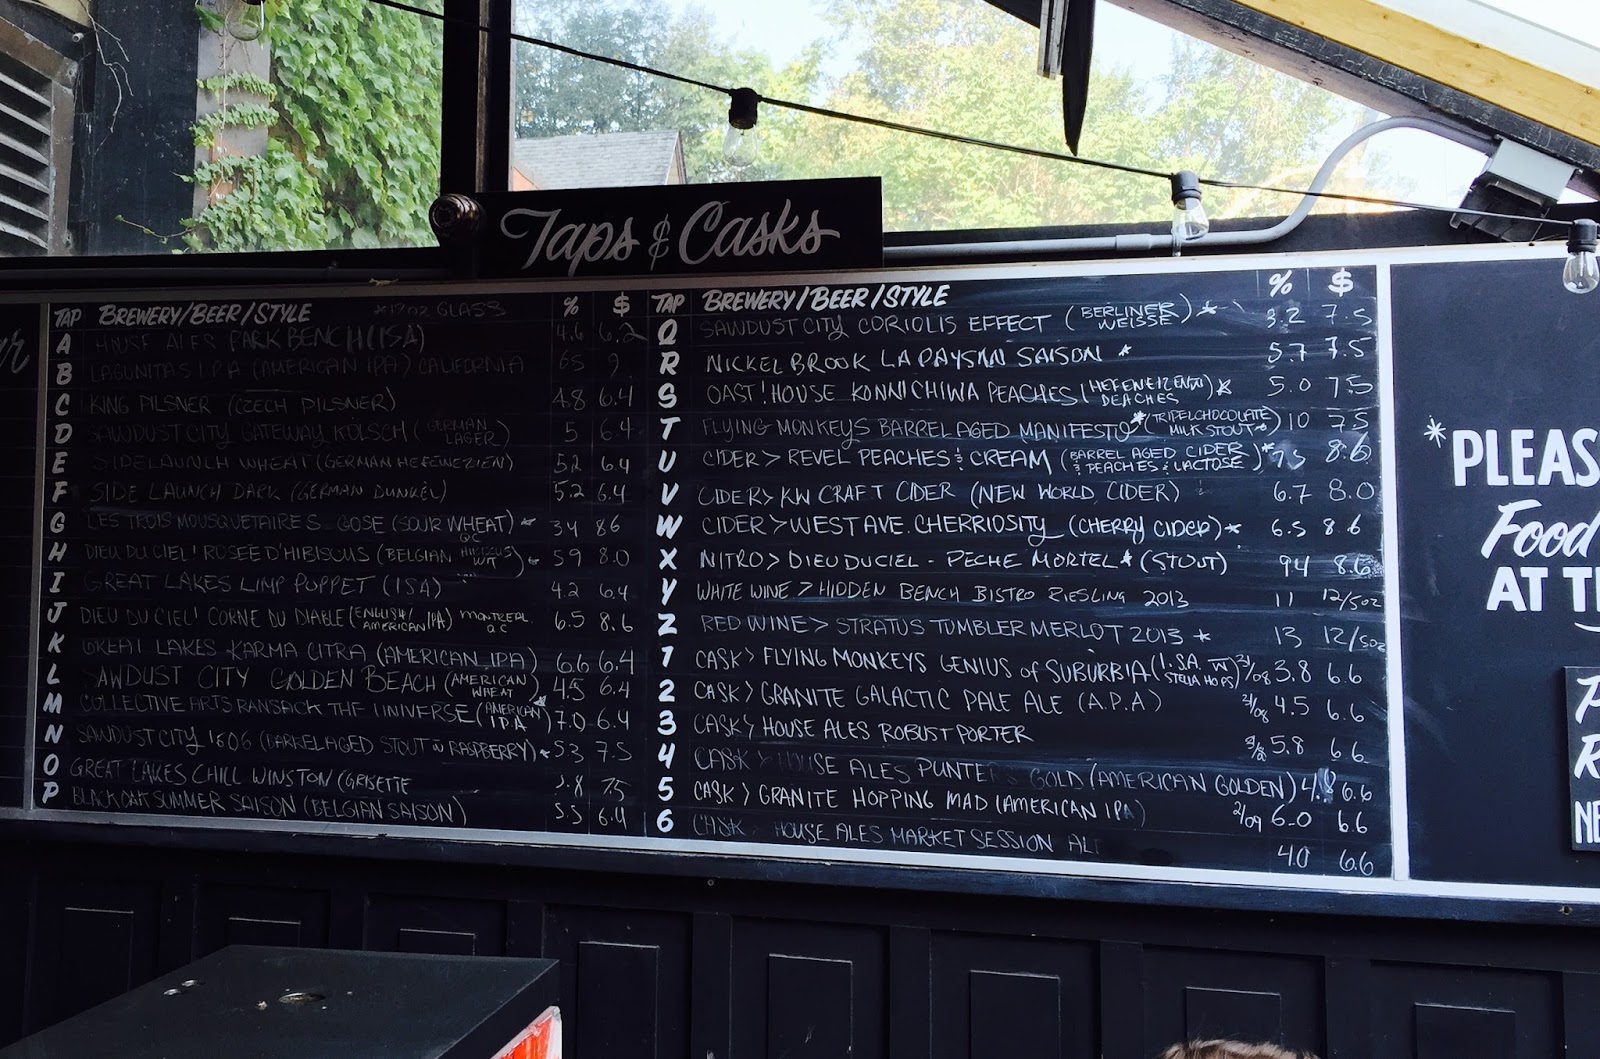 Taps & Casks
TAP BREWERY/BEER/STYLE *12oz GLASS % $
A HOUSE ALES PARK BENCH (ISA) 4.6 6.2
B LAGUNITAS IPA (AMERICAN IPA) CALIFORNIA 65 9
C KING PILSNER (CZECH PILSNER) 4.8 6.4
D SAWDUST CITY GATEWAY KOLSCH (GERMAN LAGER) 5 6.4
E SIDELAUNCH WHEAT (GERMAN HEFEWEIZEN) 5.2 6.4
F SIDE LAUNCH DARK (GERMAN DUNKEL) 5.2 6.4
G LES TROIS MOUSQUETAIRES GOSE (SOUR WHEAT) * QC 3.4 8.6
H DIEU DU CIEL! ROSEE D'HIBISCUS (BELGIAN HIBISCUS WIT) * 5.9 8.0
I GREAT LAKES LIMP PUPPET (ISA) 4.2 6.4
J DIEU DU CIEL! CORNE DU DIABLE (ENGLISH/AMERICAN IPA) MONTREAL QC 6.5 8.6
K GREAT LAKES KARMA CITRA (AMERICAN IPA) 6.6 6.4
L SAWDUST CITY GOLDEN BEACH (AMERICAN WHEAT) 4.5 6.4
M COLLECTIVE ARTS RANSACK THE UNIVERSE (AMERICAN IPA) * 7.0 6.4
N SAWDUST CITY 1606 (BARREL AGED STOUT W RASPBERRY) * 5.3 7.5
O GREAT LAKES CHILL WINSTON (GRISETTE 3.8 7.5
P BLACK OAK SUMMER SAISON (BELGIAN SAISON) 5.5 6.4
TAP BREWERY/BEER/STYLE % $
Q SAWDUST CITY CORIOLIS EFFECT (BERLINER WEISSE) * 3.2 7.5
R NICKEL BROOK LA PAYSAN SAISON * 5.7 7.5
S OAST! HOUSE KONNICHIWA PEACHES (HEFEWEIZEN PEACHES) * 5.0 7.5
T FLYING MONKEYS BARREL AGED MANIFESTO * (TRIPEL CHOCOLATE MILK STOUT) 10 7.5
U CIDER > REVEL PEACHES & CREAM (BARREL AGED CIDER & PEACHES & LACTOSE) * 7.5 8.6
V CIDER > KW CRAFT CIDER (NEW WORLD CIDER) 6.7 8.0
W CIDER > WEST AVE. CHERRIOSITY (CHERRY CIDER) * 6.5 8.6
X NITRO > DIEU DU CIEL - PECHE MORTEL * (STOUT) 9.4 8.6
Y WHITE WINE > HIDDEN BENCH BISTRO RIESLING 2013 11 12/5oz
Z RED WINE > STRATUS TUMBLER MERLOT 2013 * 13 12/5oz
1 CASK > FLYING MONKEYS GENIUS of SUBURBIA (I.SA. W/ STELLA HOPS) 31/08 3.8 6.6
2 CASK > GRANITE GALACTIC PALE ALE (A.P.A) 21/08 4.5 6.6
3 CASK > HOUSE ALES ROBUST PORTER 5.8 6.6
4 CASK > HOUSE ALES PUNTERS GOLD (AMERICAN GOLDEN) 4.8 6.6
5 CASK > GRANITE HOPPING MAD (AMERICAN IPA) 2/09 6.0 6.6
6 CASK HOUSE ALES MARKET SESSION AL 4.0 6.6
*PLEAS
Food
AT T
P
R
NE